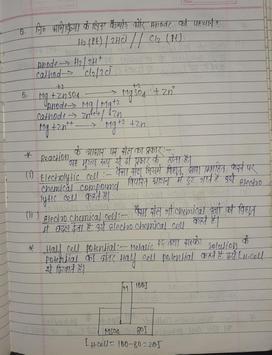 Q. निम्न अभिक्रिया के लिए कैथोड और Anode को पहचानिए।
H2(Pt) / 2HCl // Cl2 (Pt)
Anode → H2/2H+
Cathod → Cl2/2Cl
Mg + ZnSO4 → MgSO4 + Zn
Anode → Mg/Mg+2
Cathode → Zn+2/Zn
Mg + Zn++ → Mg+2 + Zn
* Reaction के आधार पर सेल का प्रकार:-
यह मुख्य रूप से दो प्रकार के होता है।
(i) Electrolytic cell :- वैसा सेल जिसमें विद्युत धारा प्रवाहित करने पर
chemical compound में टूट जाते हैं उसे Electro
lytic cell कहते हैं।
(ii) Electro chemical cell:- वैसा सेल जो chemical ऊर्जा को विद्युत
में बदल देता है उसे electro chemical cell कहते हैं।
* Half cell potential:- Metalic rod तथा उसके solution के
potential का अंतर Half cell potential कहते हैं उसे H-cell
से दिखाते हैं।
100
80
[H-cell = 100-80 = 20]